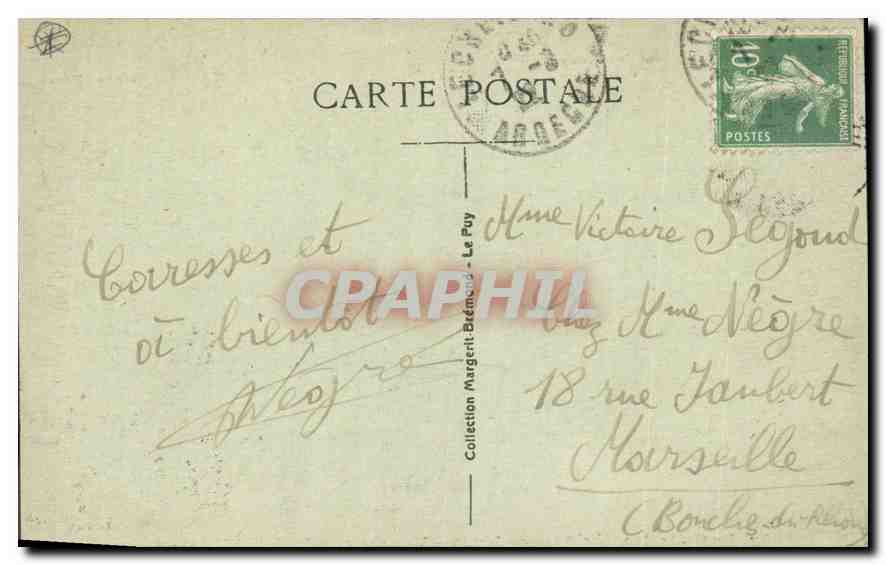 CARTE POSTALE
ARDECHE
10c
REPUBLIQUE FRANÇAISE
POSTES
Caresses et
à bientôt
Nègre
Collection Margerit-Brémond - Le Puy
CPAPHIL
Mme Victoire Segond
Chez Mme Nègre
18 rue Jaubert
Marseille
(Bouche-du-Rhône